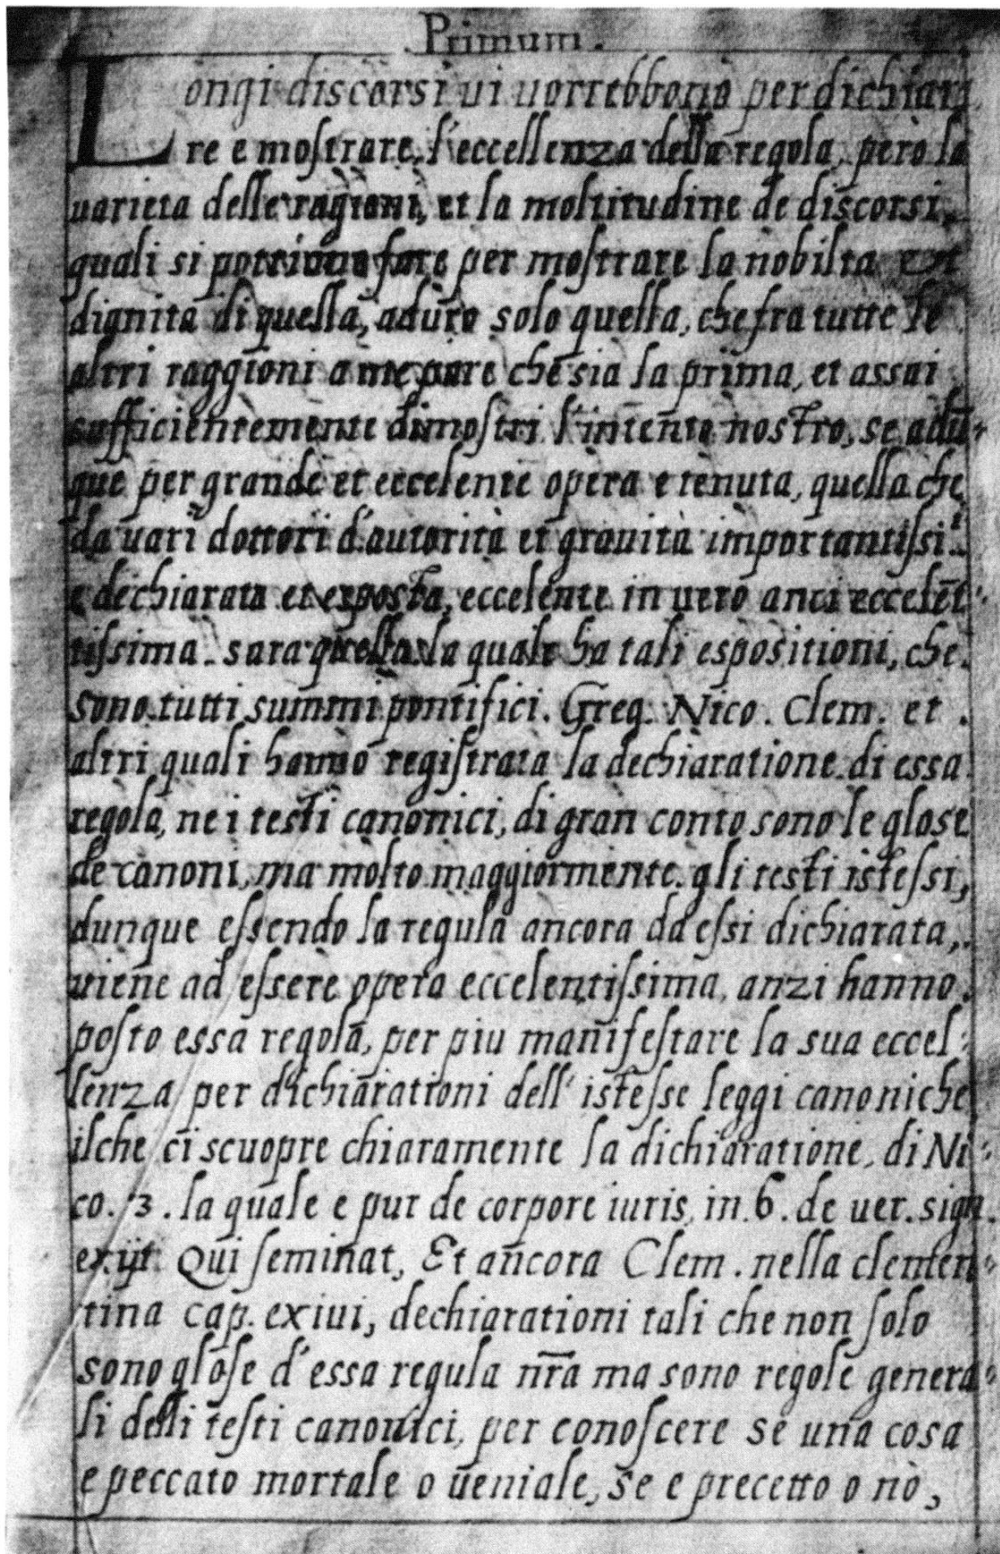 Primum.
Longi discorsi vi vorrebbono per dichiara
re e mostrare, l'eccellenza della regola, però la
varieta delle ragioni, et la moltitudine de discorsi,
quali si potrivno fare per mostrare la nobilta et
dignita di quella, aduro solo quella, che fra tutte le
altri raggioni a me pare che sia la prima, et assai
sufficientemente dimostri l'intento nostro, se adū-
que per grande et eccelente opera e tenuta, quella che
da vari dottori d'autorità et gravità importantissi.
e dechiarata et exposta, eccelente in vero anci eccelēt-
tissima. sara quella la quale ha tali espositioni, che
sono tutti summi pontifici. Greg. Nico. Clem. et.
altri quali hanno registrata la dechiaratione di essa
regola, ne i testi canonici, di gran conto sono le glose
de canoni, ma molto maggiormente gli testi istessi,
dunque essendo la regula ancora da essi dichiarata,
viene ad essere opera eccelentissima, anzi hanno
posto essa regola, per piu manifestare la sua eccel-
lenza per dichiarationi dell'istesse leggi canoniche
ilche ci scuopre chiaramente la dichiaratione, di Ni-
co. 3. la quale e pur de corpore iuris, in. 6. de ver. sign.
exijt Qui seminat, Et ancora Clem. nella clemen-
tina cap. exivi, dechiarationi tali che non solo
sono glose d'essa regula nr̄a ma sono regole genera-
li delli testi canonici, per conoscere se una cosa
e peccato mortale o veniale, se e precetto o nò,